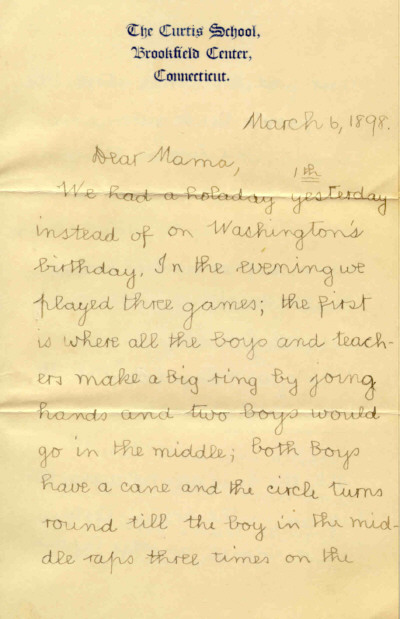 The Curtis School,
Brookfield Center,
Connecticut.
March 6, 1898.
Dear Mama,
1th
We had a holaday yesterday
instead of on Washington's
birthday. In the evening we
played three games; the first
is where all the boys and teach-
ers make a big ring by joing
hands and two boys would
go in the middle; both boys
have a cane and the circle turns
round till the boy in the mid-
dle raps three times on the